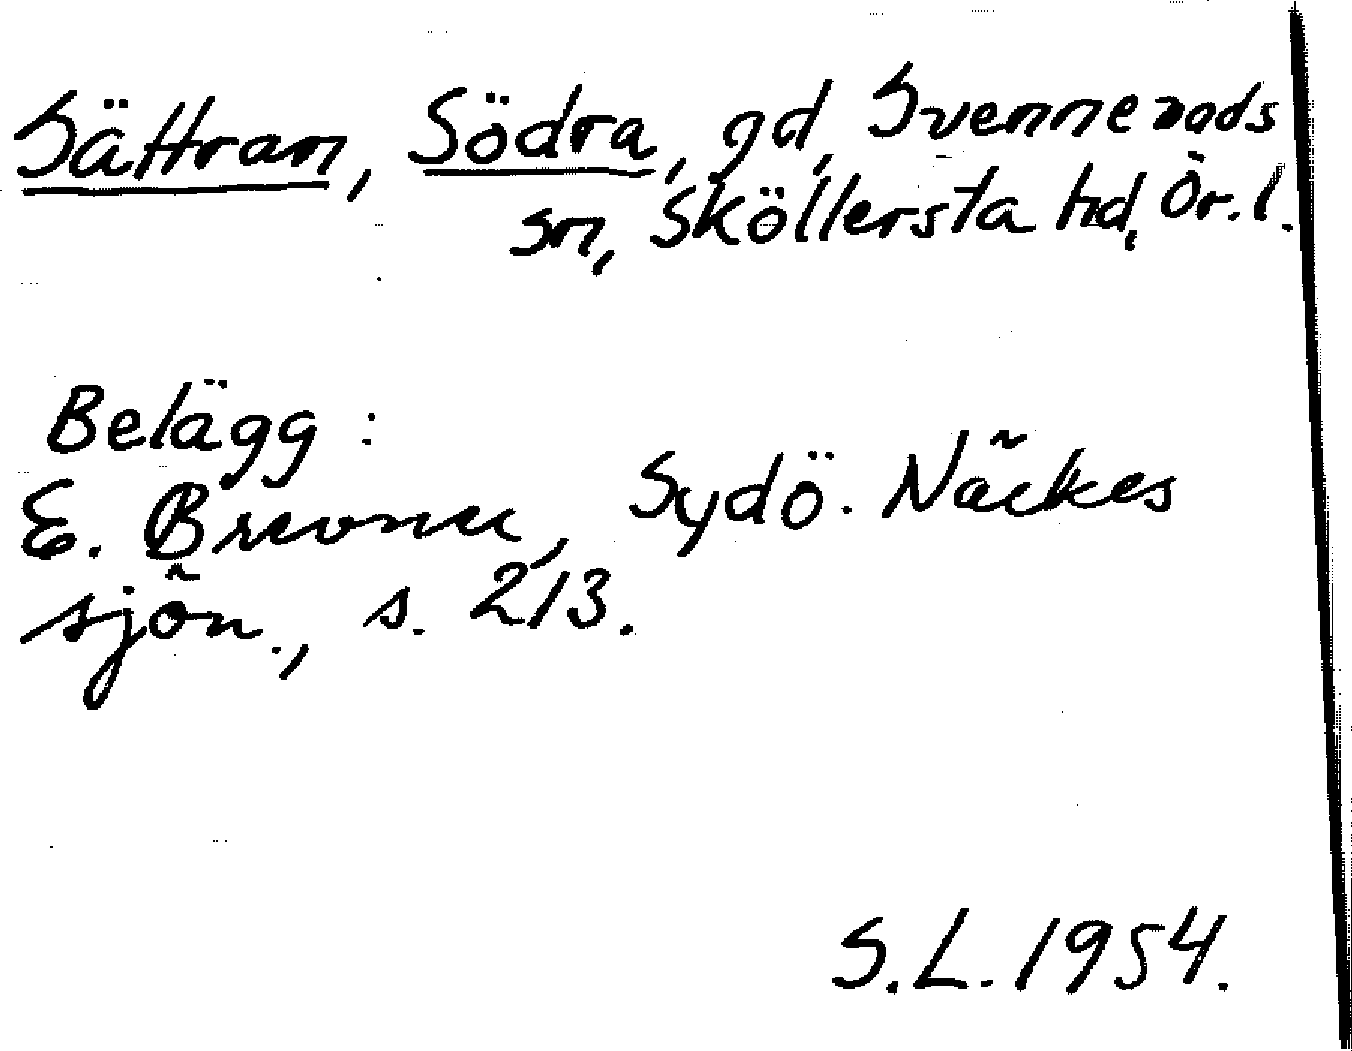 Sättran, Södra, gd, Svennevads
sn, Sköllersta hd, Ör. l.
Belägg:
E. Brevner, Sydö. Närkes
sjön., s. 213.
S.L. 1954.